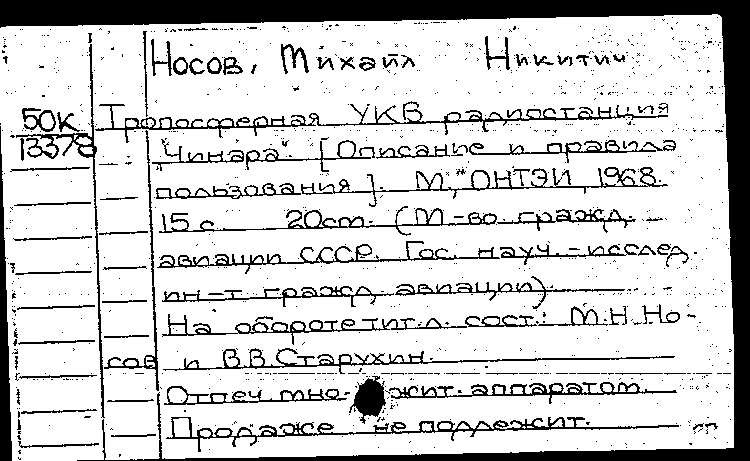 Носов, Михаил Никитич
50К
13378
Тропосферная УКВ радиостанция
"Чинара". [Описание и правила
пользования]. М., "ОНТЭИ, 1968.
15 с. 20cm. (М-во гражд.
авиации СССР. Гос. науч.-исслед.
ин-т гражд. авиации).
На обороте тит. л. сост.: М.Н. Но-
сов и В.В. Старухин.
Отпеч. мно- жит. аппаратом.
Продаже не подлежит.